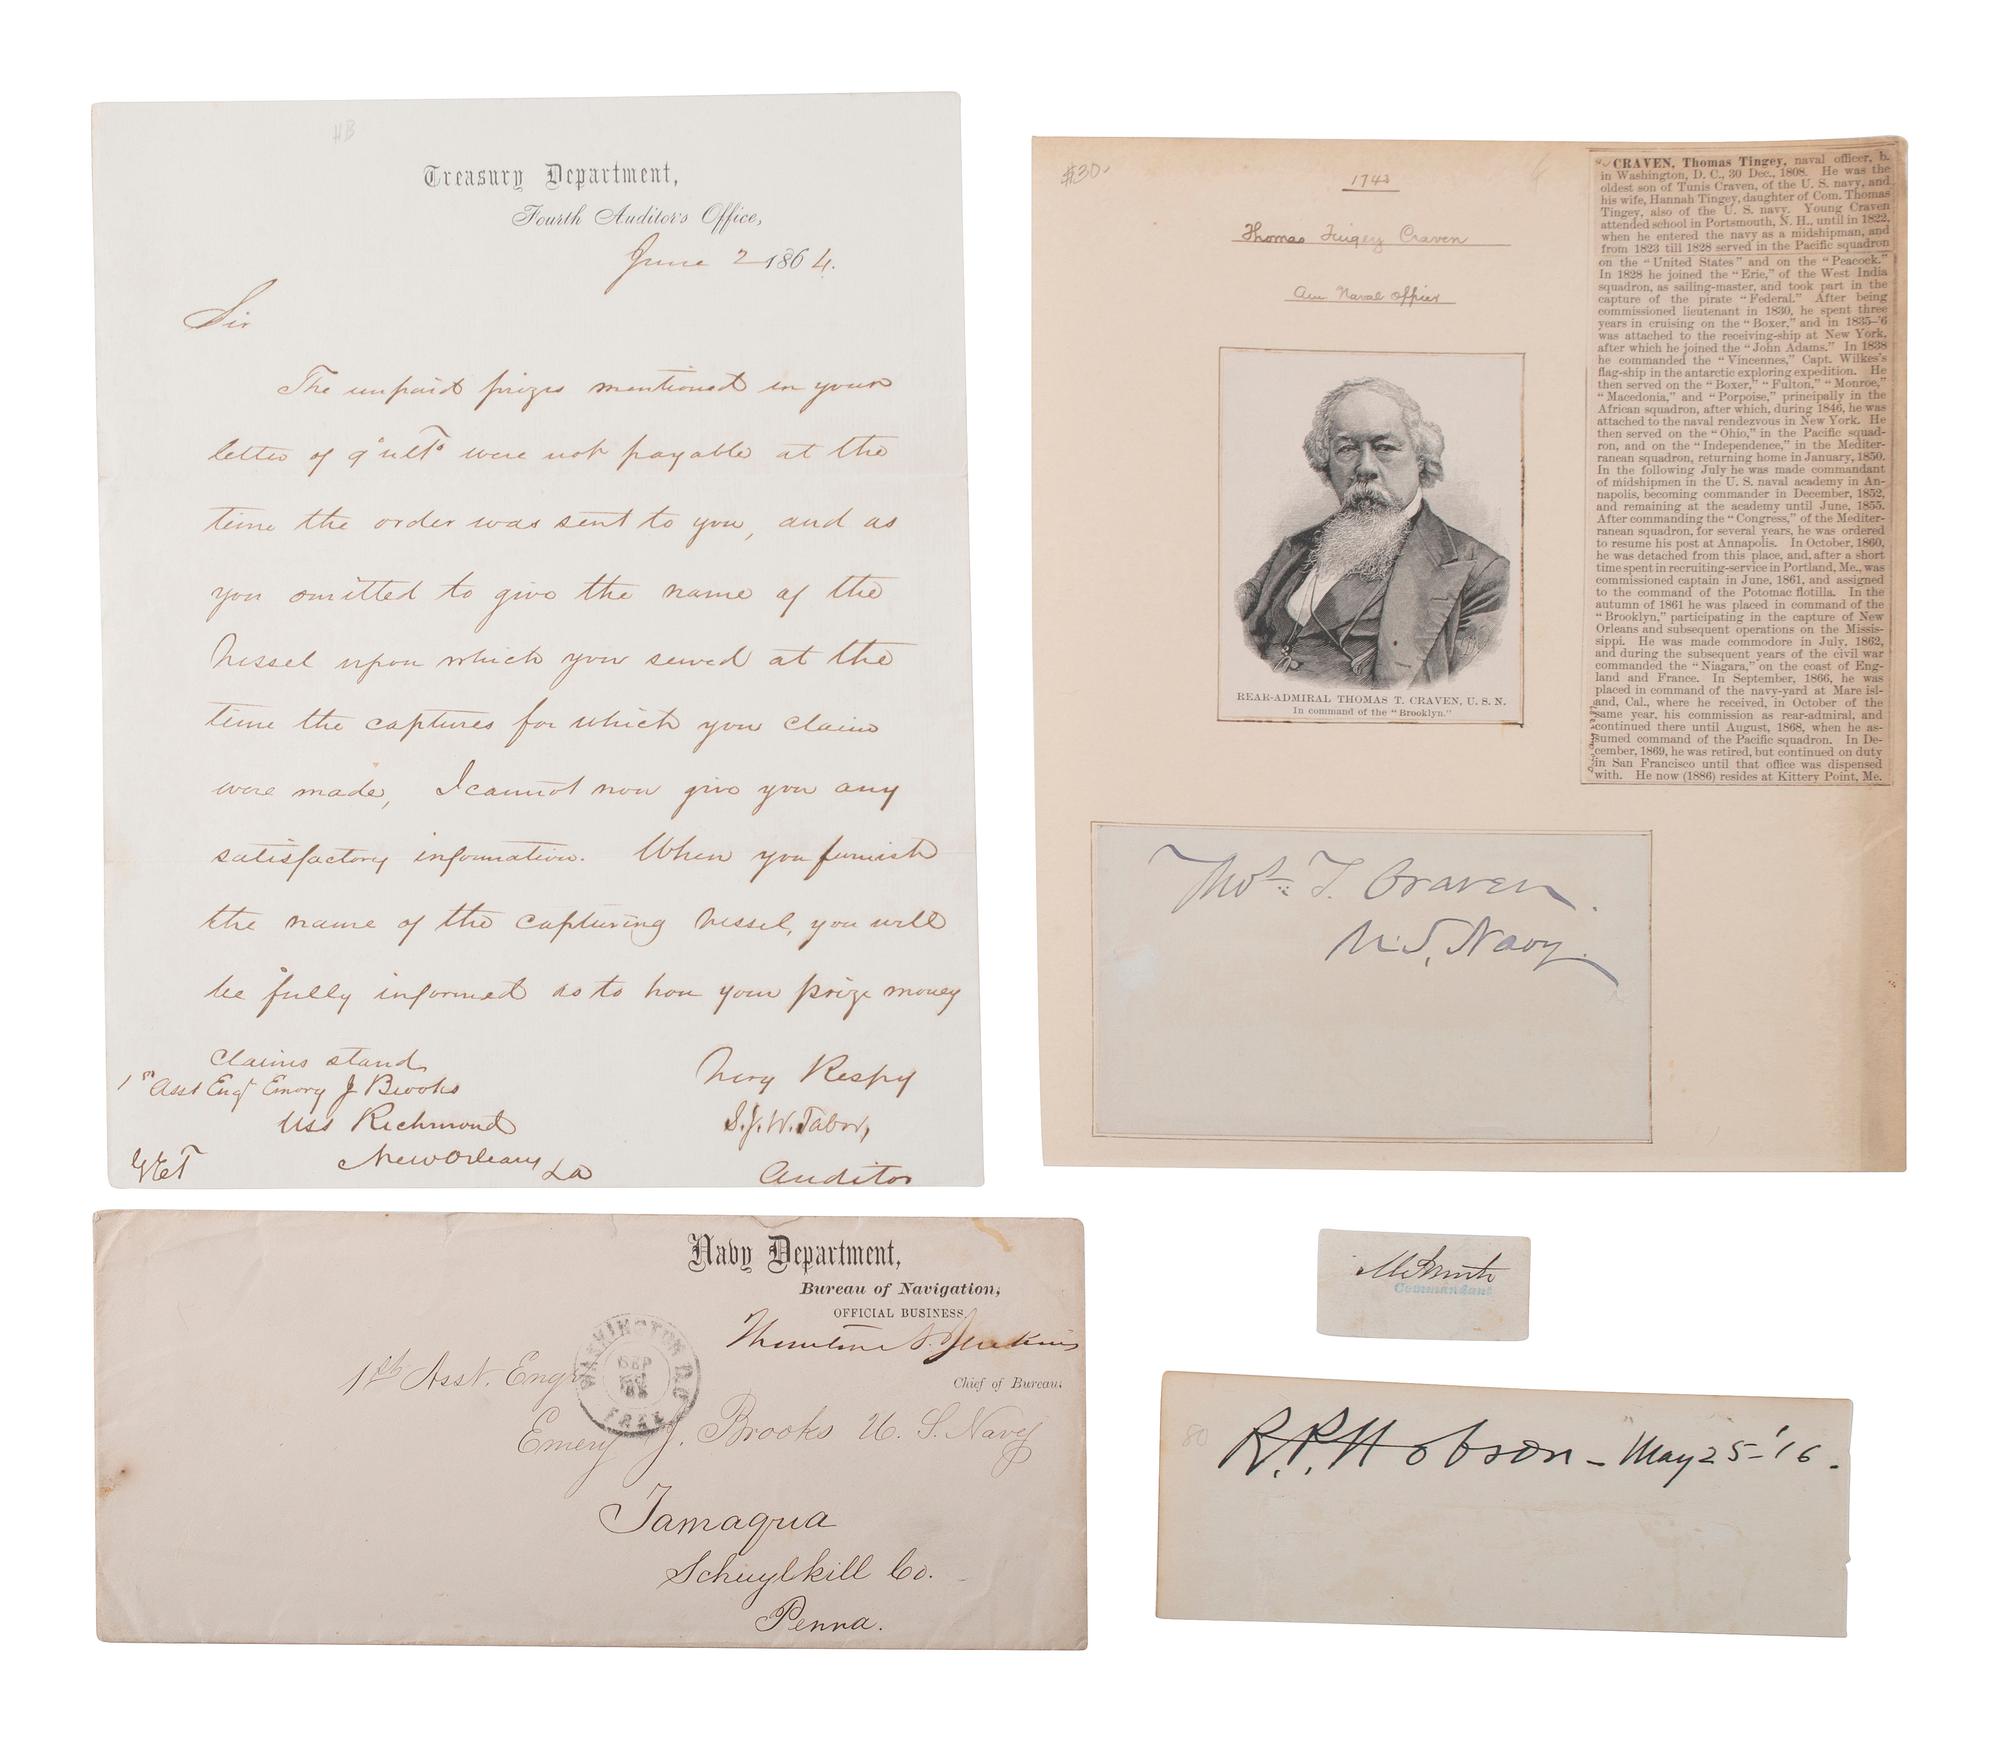 HB
Treasury Department,
Fourth Auditor's Office,
June 2 1864.
Sir
The unpaid prizes mentioned in your
letter of 9" ult° were not payable at the
time the order was sent to you, and as
you omitted to give the name of the
Vessel upon which you served at the
time the captures for which you claim
were made, I cannot now give you any
satisfactory information. When you furnish
the name of the capturing vessel, you will
be fully informed as to how your prize money
claims stand
Very Respy
1st Asst Engr Emory J Brooks
USS Richmond
New Orleans La
S.J.W. Tabor,
Auditor
$30.
1743
Thomas Tingey Craven
Am Naval Officer
REAR-ADMIRAL THOMAS T. CRAVEN, U. S. N.
In command of the "Brooklyn."
CRAVEN, Thomas Tingey, naval officer, b.
in Washington, D. C., 30 Dec., 1808. He was the
oldest son of Tunis Craven, of the U. S. navy, and
his wife, Hannah Tingey, daughter of Com. Thomas
Tingey, also of the U. S. navy. Young Craven
attended school in Portsmouth, N. H., until in 1822,
when he entered the navy as a midshipman, and
from 1823 till 1828 served in the Pacific squadron
on the "United States" and on the "Peacock."
In 1828 he joined the "Erie," of the West India
squadron, as sailing-master, and took part in the
capture of the pirate "Federal." After being
commissioned lieutenant in 1830, he spent three
years in cruising on the "Boxer," and in 1835-'6
was attached to the receiving-ship at New York,
after which he joined the "John Adams." In 1838
he commanded the "Vincennes," Capt. Wilkes's
flag-ship in the antarctic exploring expedition. He
then served on the "Boxer," "Fulton," "Monroe,"
"Macedonia," and "Porpoise," principally in the
African squadron, after which, during 1846, he was
attached to the naval rendezvous in New York. He
then served on the "Ohio," in the Pacific squad-
ron, and on the "Independence," in the Mediter-
ranean squadron, returning home in January, 1850.
In the following July he was made commandant
of midshipmen in the U. S. naval academy in An-
napolis, becoming commander in December, 1852,
and remaining at the academy until June, 1855.
After commanding the "Congress," of the Mediter-
ranean squadron, for several years, he was ordered
to resume his post at Annapolis. In October, 1860,
he was detached from this place, and, after a short
time spent in recruiting-service in Portland, Me., was
commissioned captain in June, 1861, and assigned
to the command of the Potomac flotilla. In the
autumn of 1861 he was placed in command of the
"Brooklyn," participating in the capture of New
Orleans and subsequent operations on the Missis-
sippi. He was made commodore in July, 1862,
and during the subsequent years of the civil war
commanded the "Niagara," on the coast of Eng-
land and France. In September, 1866, he was
placed in command of the navy-yard at Mare isl-
and, Cal., where he received, in October of the
same year, his commission as rear-admiral, and
continued there until August, 1868, when he as-
sumed command of the Pacific squadron. In De-
cember, 1869, he was retired, but continued on duty
in San Francisco until that office was dispensed
with. He now (1886) resides at Kittery Point, Me.
Thos. T. Craven.
U.S. Navy.
Navy Department,
Bureau of Navigation,
OFFICIAL BUSINESS.
Thornton A. Jenkins
Chief of Bureau.
WASHINGTON D.C.
SEP
FREE
1st Asst. Engr
Emery J. Brooks U. S. Navy
Tamaqua
Schuylkill Co.
Penna.
M Smith
Commandant
80
R.P. Hobson - May 25-'16.